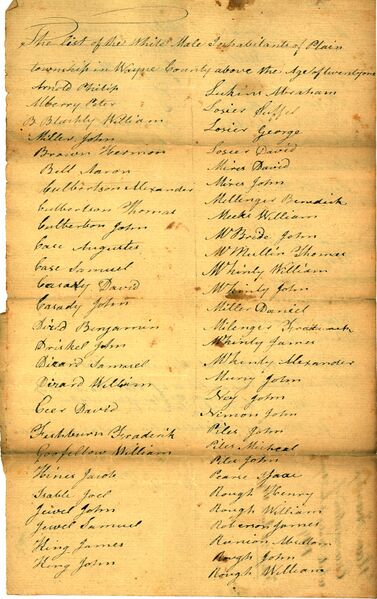 The List of the White Male Inhabitants of Plain
township in Wayne County above the Age of twenty one
Arnold Philip
Alberry Peter
B Blachly William
Miller John
Brown Hermon
Bell Aaron
Culbertson Alexander
Culbertson Thomas
Culberton John
Case Augustus
Case Samuel
Casady David
Casady John
Dield Benjamin
Driskel John
Dizard Samuel
Dizard William
Eeer David
Fishburn Fraderik
Goorfellow William
Hines Jacob
Isable Joel
Jewel John
Jewel Samuel
King James
King John
Lukins Abraham
Losier Suffel
Losier George
Losier David
Mires David
Mires John
Mellenger Benedick
Meeks William
McBride John
McMullin Thomas
McKinly William
McKinly John
Miller Daniel
Milenger Fraderick
McKinly James
McKinly Alexander
Mury John
Ney John
Nimon John
Piles John
Piles Micheal
Piles John
Pearce Isaac
Rough Henry
Rough William
Roberson James
Runion
Rough John
Rough William